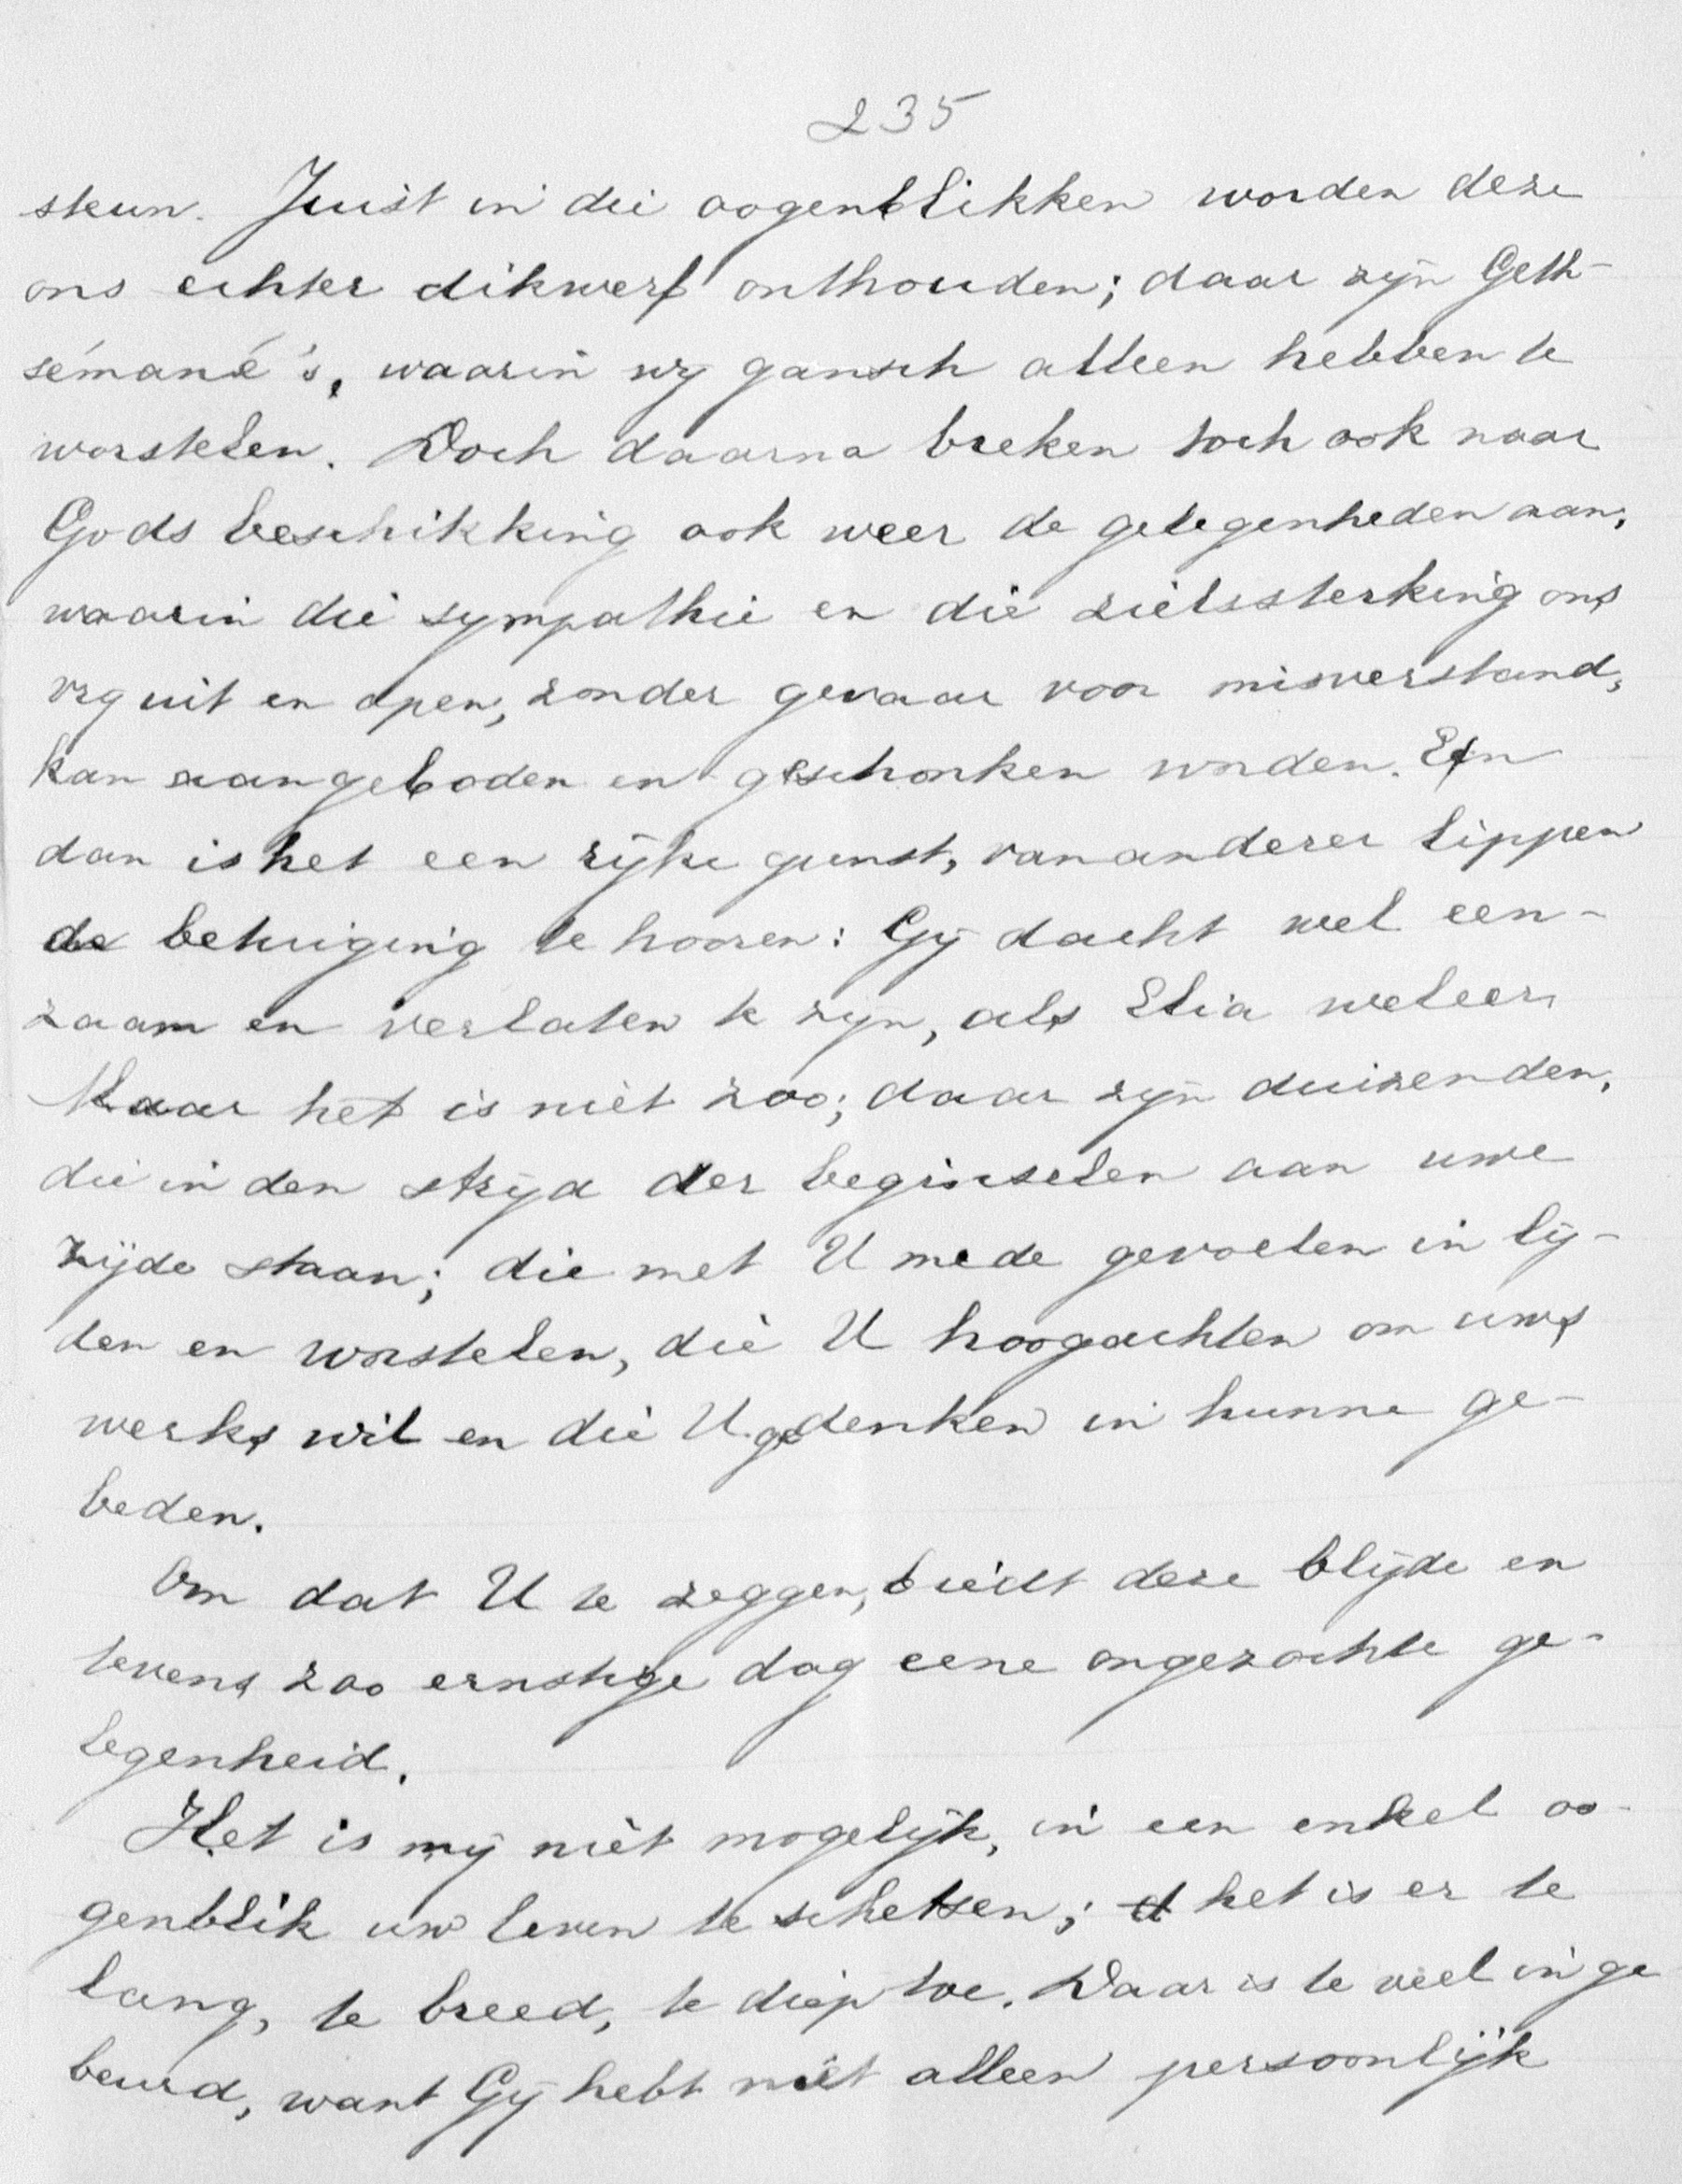 235
steun. Juist in die oogenblikken worden deze
ons echter dikwerf onthouden; daar zijn Geth-
sémané's, waarin wij gansch alleen hebben te
worstelen. Doch daarna breken toch ook naar
Gods beschikking ook weer de gelegenheden aan,
waarin die sympathie en die zielssterking ons
vrij uit en open, zonder gevaar voor misverstand,
kan aangeboden en geschonken worden. En
dan is het een rijke gunst, van anderer lippen
de betuiging te hooren: Gij dacht wel een-
zaam en verlaten te zijn, als Elia weleer.
Maar het is niet zoo; daar zijn duizenden,
die in den strijd der beginselen aan uwe
zijde staan; die met U mede gevoelen in lij-
den en worstelen, die U hoogachten om uws
werks wil en die U gedenken in hunne ge-
beden.
Om dat U te zeggen, biedt deze blijde en
tevens zoo ernstige dag eene ongezochte ge-
legenheid.
Het is mij niet mogelijk, in een enkel oo-
genblik uw leven te schetsen; het is er te
lang, te breed, te diep toe. Daar is te veel in ge
beurd, want Gij hebt niet alleen persoonlijk